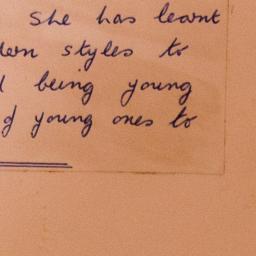 She has learnt
styles to
being young
young ones to